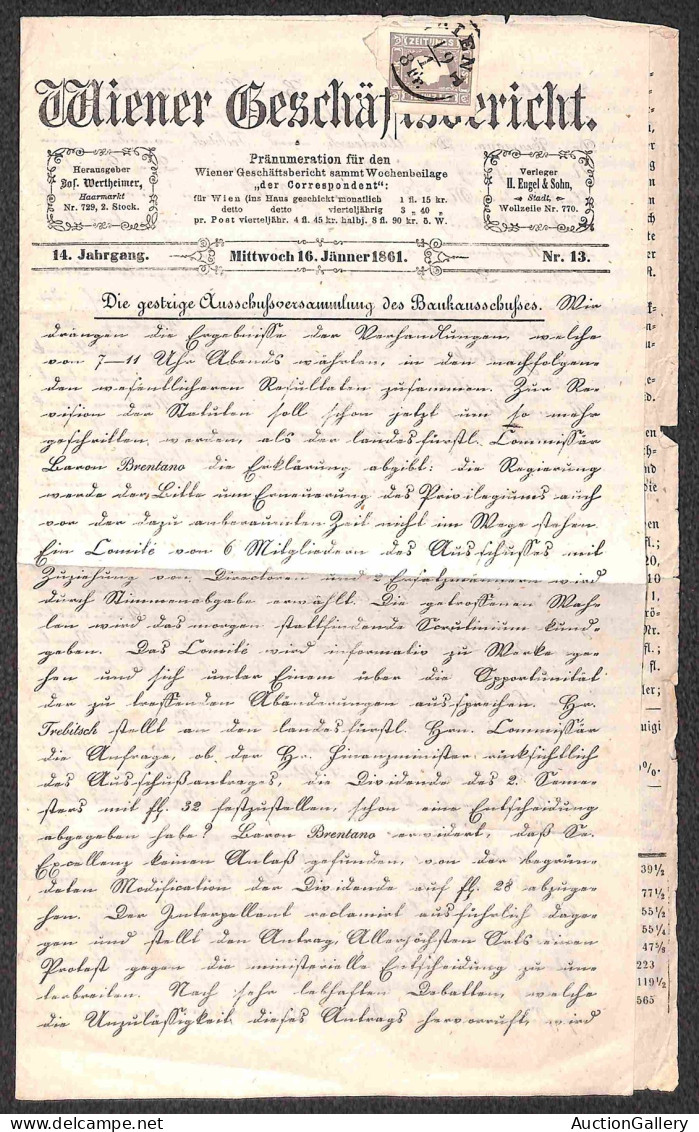 ZEITUNGS
WIEN
19
1
8 Fr.
Wiener Geschäftsbericht.
Herausgeber
Jos. Wertheimer,
Haarmarkt
Nr. 729, 2. Stock.
Pränumeration für den
Wiener Geschäftsbericht sammt Wochenbeilage
„der Correspondent“:
für Wien (ins Haus geschickt monatlich 1 fl. 15 kr.
detto detto vierteljährig 3 „ 40 „
pr. Post vierteljähr. 4 fl. 45 kr. halbj. 8 fl. 90 kr. ö. W.
Verleger
H. Engel & Sohn,
Stadt,
Wollzeile Nr. 770.
14. Jahrgang.
Mittwoch 16. Jänner 1861.
Nr. 13.
Die gestrige Ausschußversammlung des Bankausschußes. Wir
drängen die Ergebnisse der Verhandlungen, welche
von 7–11 Uhr Abends währten, in den nachfolgen=
den wesentlicheren Resultaten zusammen. Zur Re=
vision der Statuten soll schon jetzt um so mehr
geschritten werden, als der landesfürstl. Commissär
Baron Brentano die Erklärung abgibt: die Regierung
werde der Bitte um Erneuerung des Privilegiums auch
vor der dazu anberaumten Zeit nicht im Wege stehen.
Ein Comité von 6 Mitgliedern des Ausschusses mit
Zuziehung von Directoren und 2 Ersatzmännern wird
durch Stimmenabgabe erwählt. Die getroffenen Wah=
len wird das morgen stattfindende Scrutinium kund=
geben. Das Comité wird informativ zu Werke ge=
hen und sich unter Einem über die Opportunität
der zu treffenden Abänderungen aussprechen. Hr.
Trebitsch stellt an den landesfürstl. Hrn. Commissär
die Anfrage, ob der Hr. Finanzminister rücksichtlich
des Ausschußantrages, die Dividende des 2. Seme=
sters mit fl. 32 festzustellen, schon eine Entscheidung
abgegeben habe? Baron Brentano erwidert, daß Se.
Excellenz keinen Anlaß gefunden, von der begrün=
deten Modification der Dividende auf fl. 28 abzuge=
hen. Der Interpellant reclamirt ausführlich dage=
gen und stellt den Antrag, Allerhöchsten Orts einen
Protest gegen die ministerielle Entscheidung zu un=
terbreiten. Nach sehr lebhaften Debatten, welche
die Unzulässigkeit dieses Antrags hervorruft, wird
39½
77½
55½
55¼
47⅝
223
119½
565
AuctionGallery.com